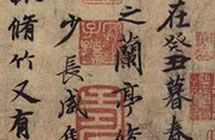 在癸丑暮春
之蘭亭脩
少長咸集
脩竹又有